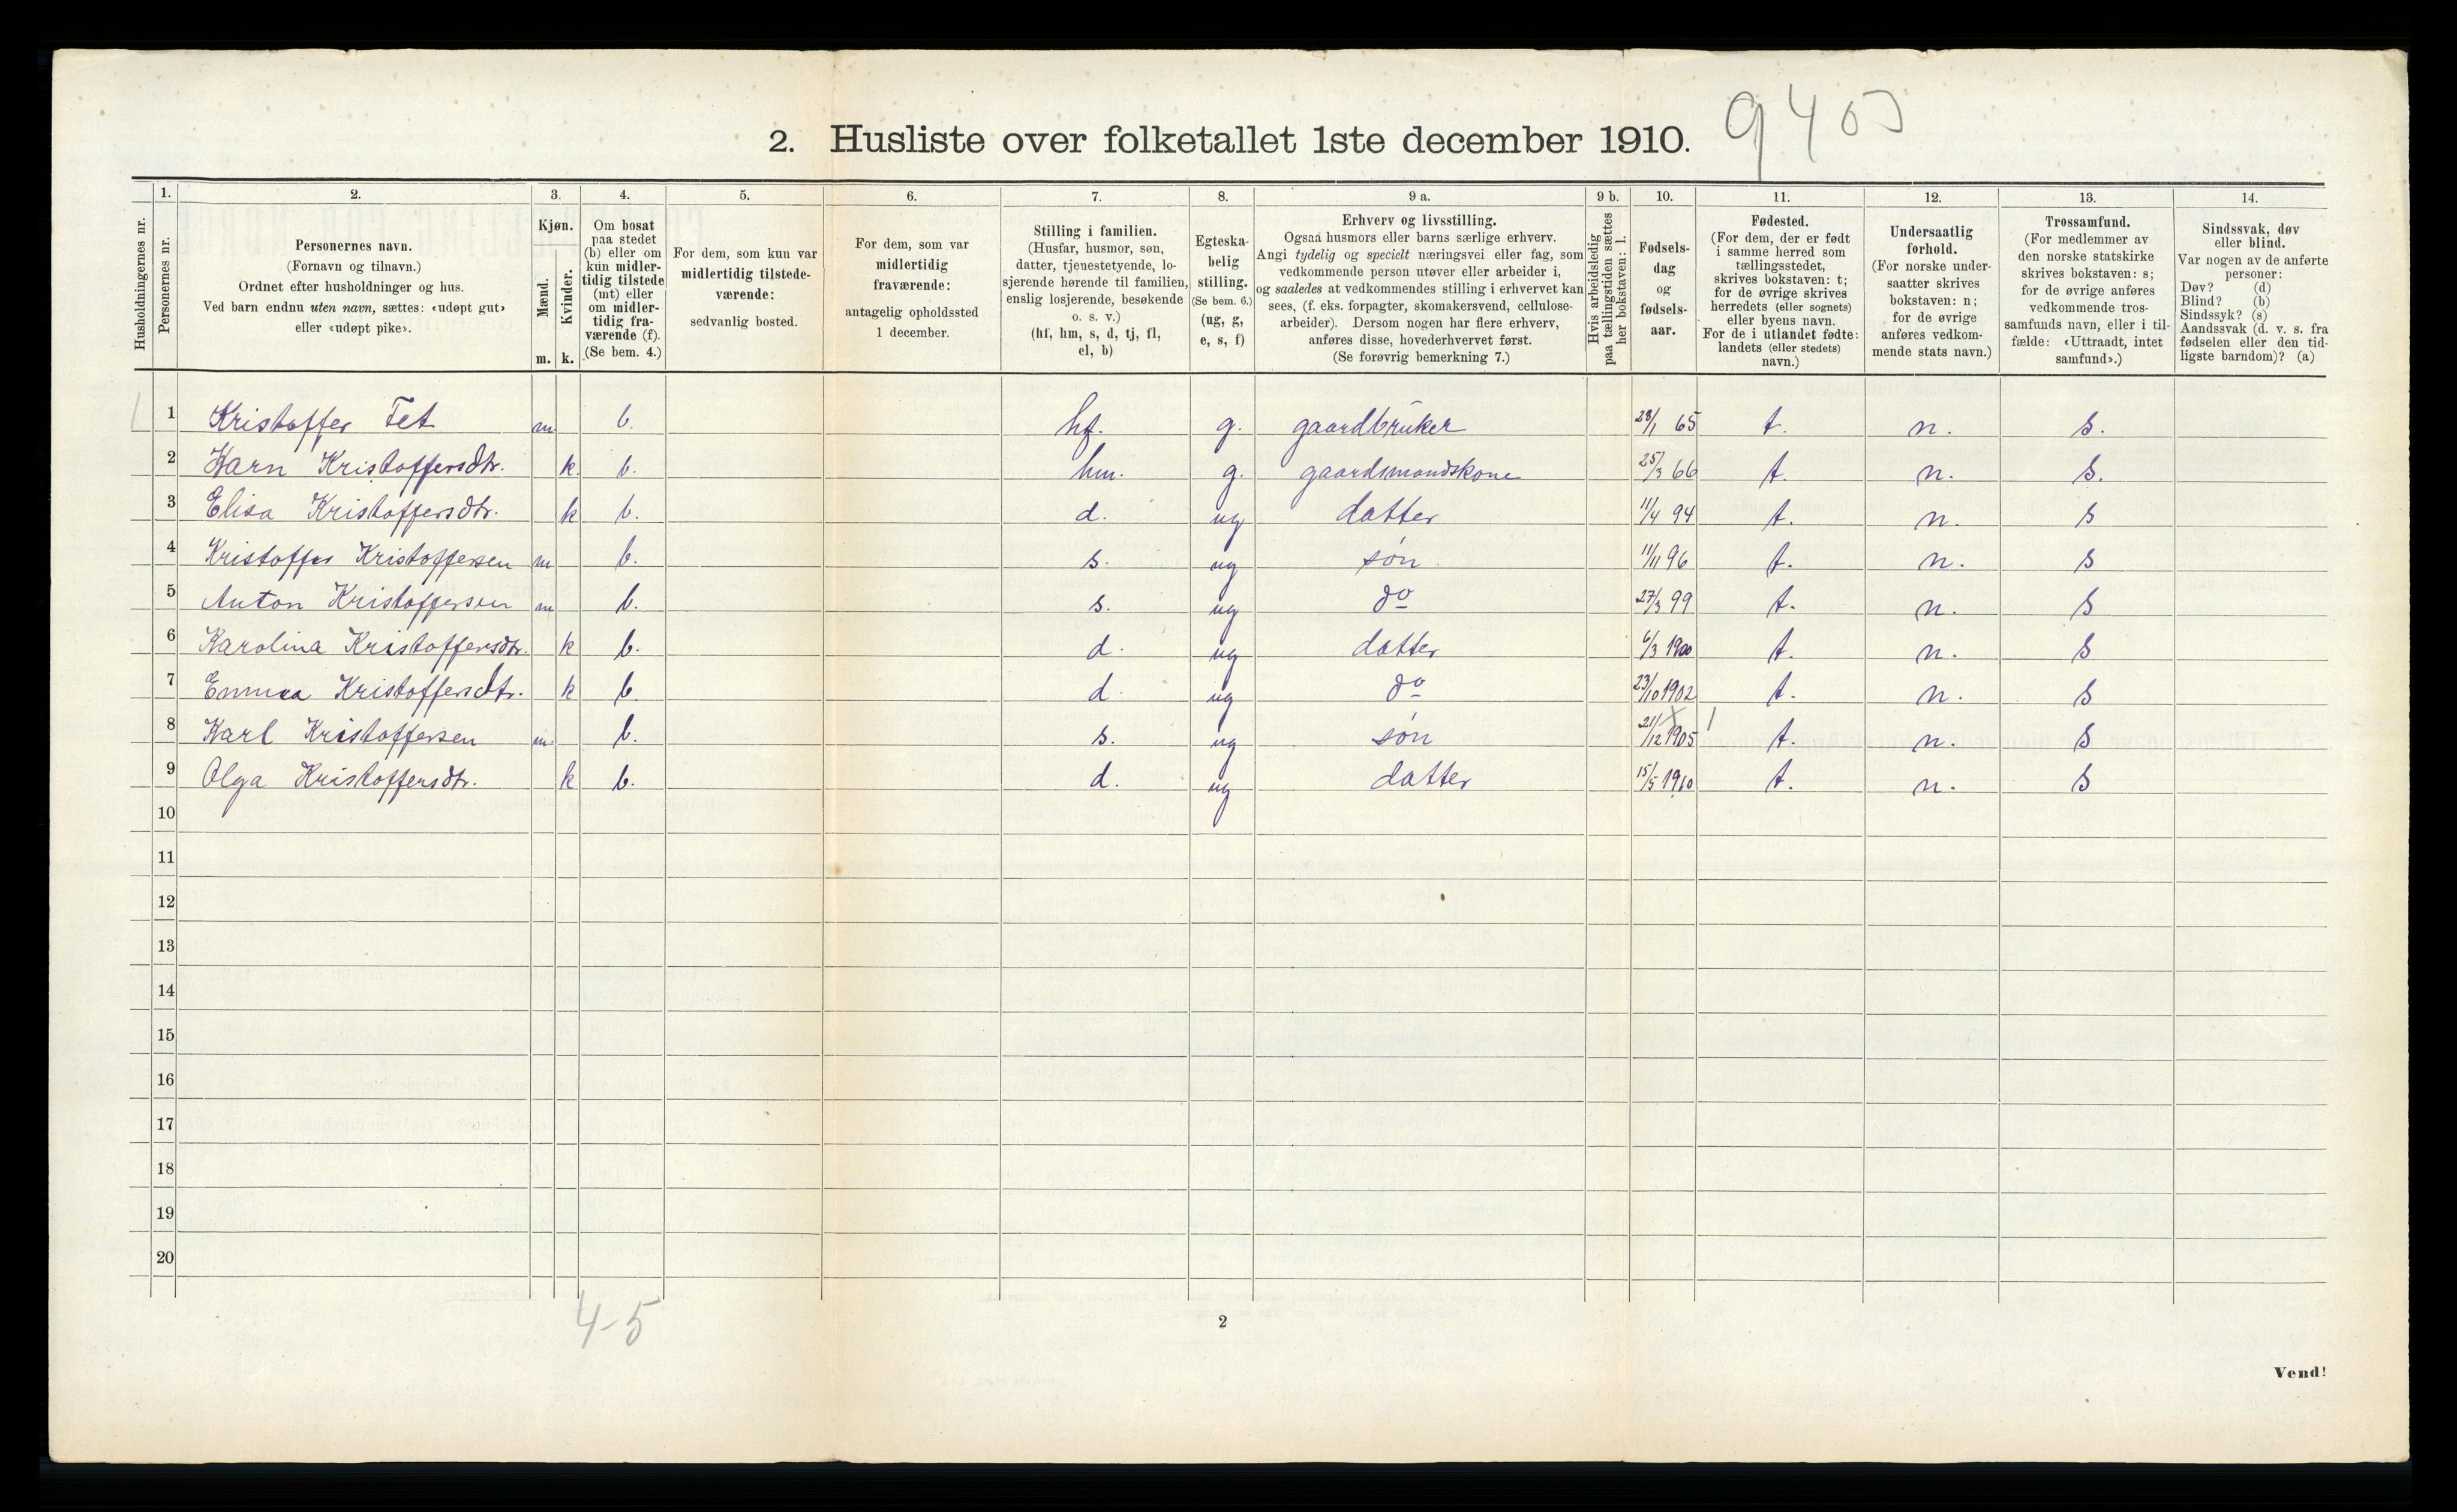 2. Husliste over folketallet 1ste december 1910. 940
1. 2. 3. 4. 5. 6. 7. 8. 9 a. 9 b. 10. 11. 12. 13. 14.
Husholdningernes nr.
Personernes nr.
Personernes navn.
(Fornavn og tilnavn.)
Ordnet efter husholdninger og hus.
Ved barn endnu uten navn, sættes: «udøpt gut»
eller «udøpt pike».
Kjøn.
Mænd.
Kvinder.
m. k.
Om bosat
paa stedet
(b) eller om
kun midler-
tidig tilstede
(mt) eller
om midler-
tidig fra-
værende (f).
(Se bem. 4.)
For dem, som kun var
midlertidig tilstede-
værende:
sedvanlig bosted.
For dem, som var
midlertidig
fraværende:
antagelig opholdssted
1 december.
Stilling i familien.
(Husfar, husmor, søn,
datter, tjenestetyende, lo-
sjerende hørende til familien,
enslig losjerende, besøkende
o. s. v.)
(hf, hm, s, d, tj, fl,
el, b)
Egteska-
belig
stilling.
(Se bem. 6.)
(ug, g,
e, s, f)
Erhverv og livsstilling.
Ogsaa husmors eller barns særlige erhverv.
Angi tydelig og specielt næringsvei eller fag, som
vedkommende person utøver eller arbeider i,
og saaledes at vedkommendes stilling i erhvervet kan
sees, (f. eks. forpagter, skomakersvend, cellulose-
arbeider). Dersom nogen har flere erhverv,
anføres disse, hovederhvervet først.
(Se forøvrig bemerkning 7.)
Hvis arbeidsledig
paa tællingstiden sættes
her bokstaven: l.
Fødsels-
dag
og
fødsels-
aar.
Fødested.
(For dem, der er født
i samme herred som
tællingsstedet,
skrives bokstaven: t;
for de øvrige skrives
herredets (eller sognets)
eller byens navn.
For de i utlandet fødte:
landets (eller stedets)
navn.)
Undersaatlig
forhold.
(For norske under-
saatter skrives
bokstaven: n;
for de øvrige
anføres vedkom-
mende stats navn.)
Trossamfund.
(For medlemmer av
den norske statskirke
skrives bokstaven: s;
for de øvrige anføres
vedkommende tros-
samfunds navn, eller i til-
fælde: «Uttraadt, intet
samfund».)
Sindssvak, døv
eller blind.
Var nogen av de anførte
personer:
Døv? (d)
Blind? (b)
Sindssyk? (s)
Aandssvak (d. v. s. fra
fødselen eller den tid-
ligste barndom)? (a)
1 1 Kristoffer Tet m b. hf. g. gaardbruker 28/1 65 t. n. s.
2 Karn Kristoffersdtr. k b. hm. g. gaardsmandskone 25/3 66 t. n. s.
3 Elisa Kristoffersdtr. k b. d. ug datter 11/4 94 t. n. s
4 Kristoffer Kristoffersen m b. s. ug søn 11/11 96 t. n. s
5 Anton Kristoffersen m b. s. ug do 27/3 99 t. n. s
6 Karolina Kristoffersdtr. k b. d. ug datter 6/3 1900 t. n. s
7 Emma Kristoffersdtr. k b. d. ug do 23/10 1902 t. n. s
8 Karl Kristoffersen m. b. s. ug søn 21/12 1905 t. n. s
9 Olga Kristoffersdtr. k b. d. ug datter 15/5 1910 t. n. s
10
11
12
13
14
15
16
17
18
19
20
4-5
2
Vend!